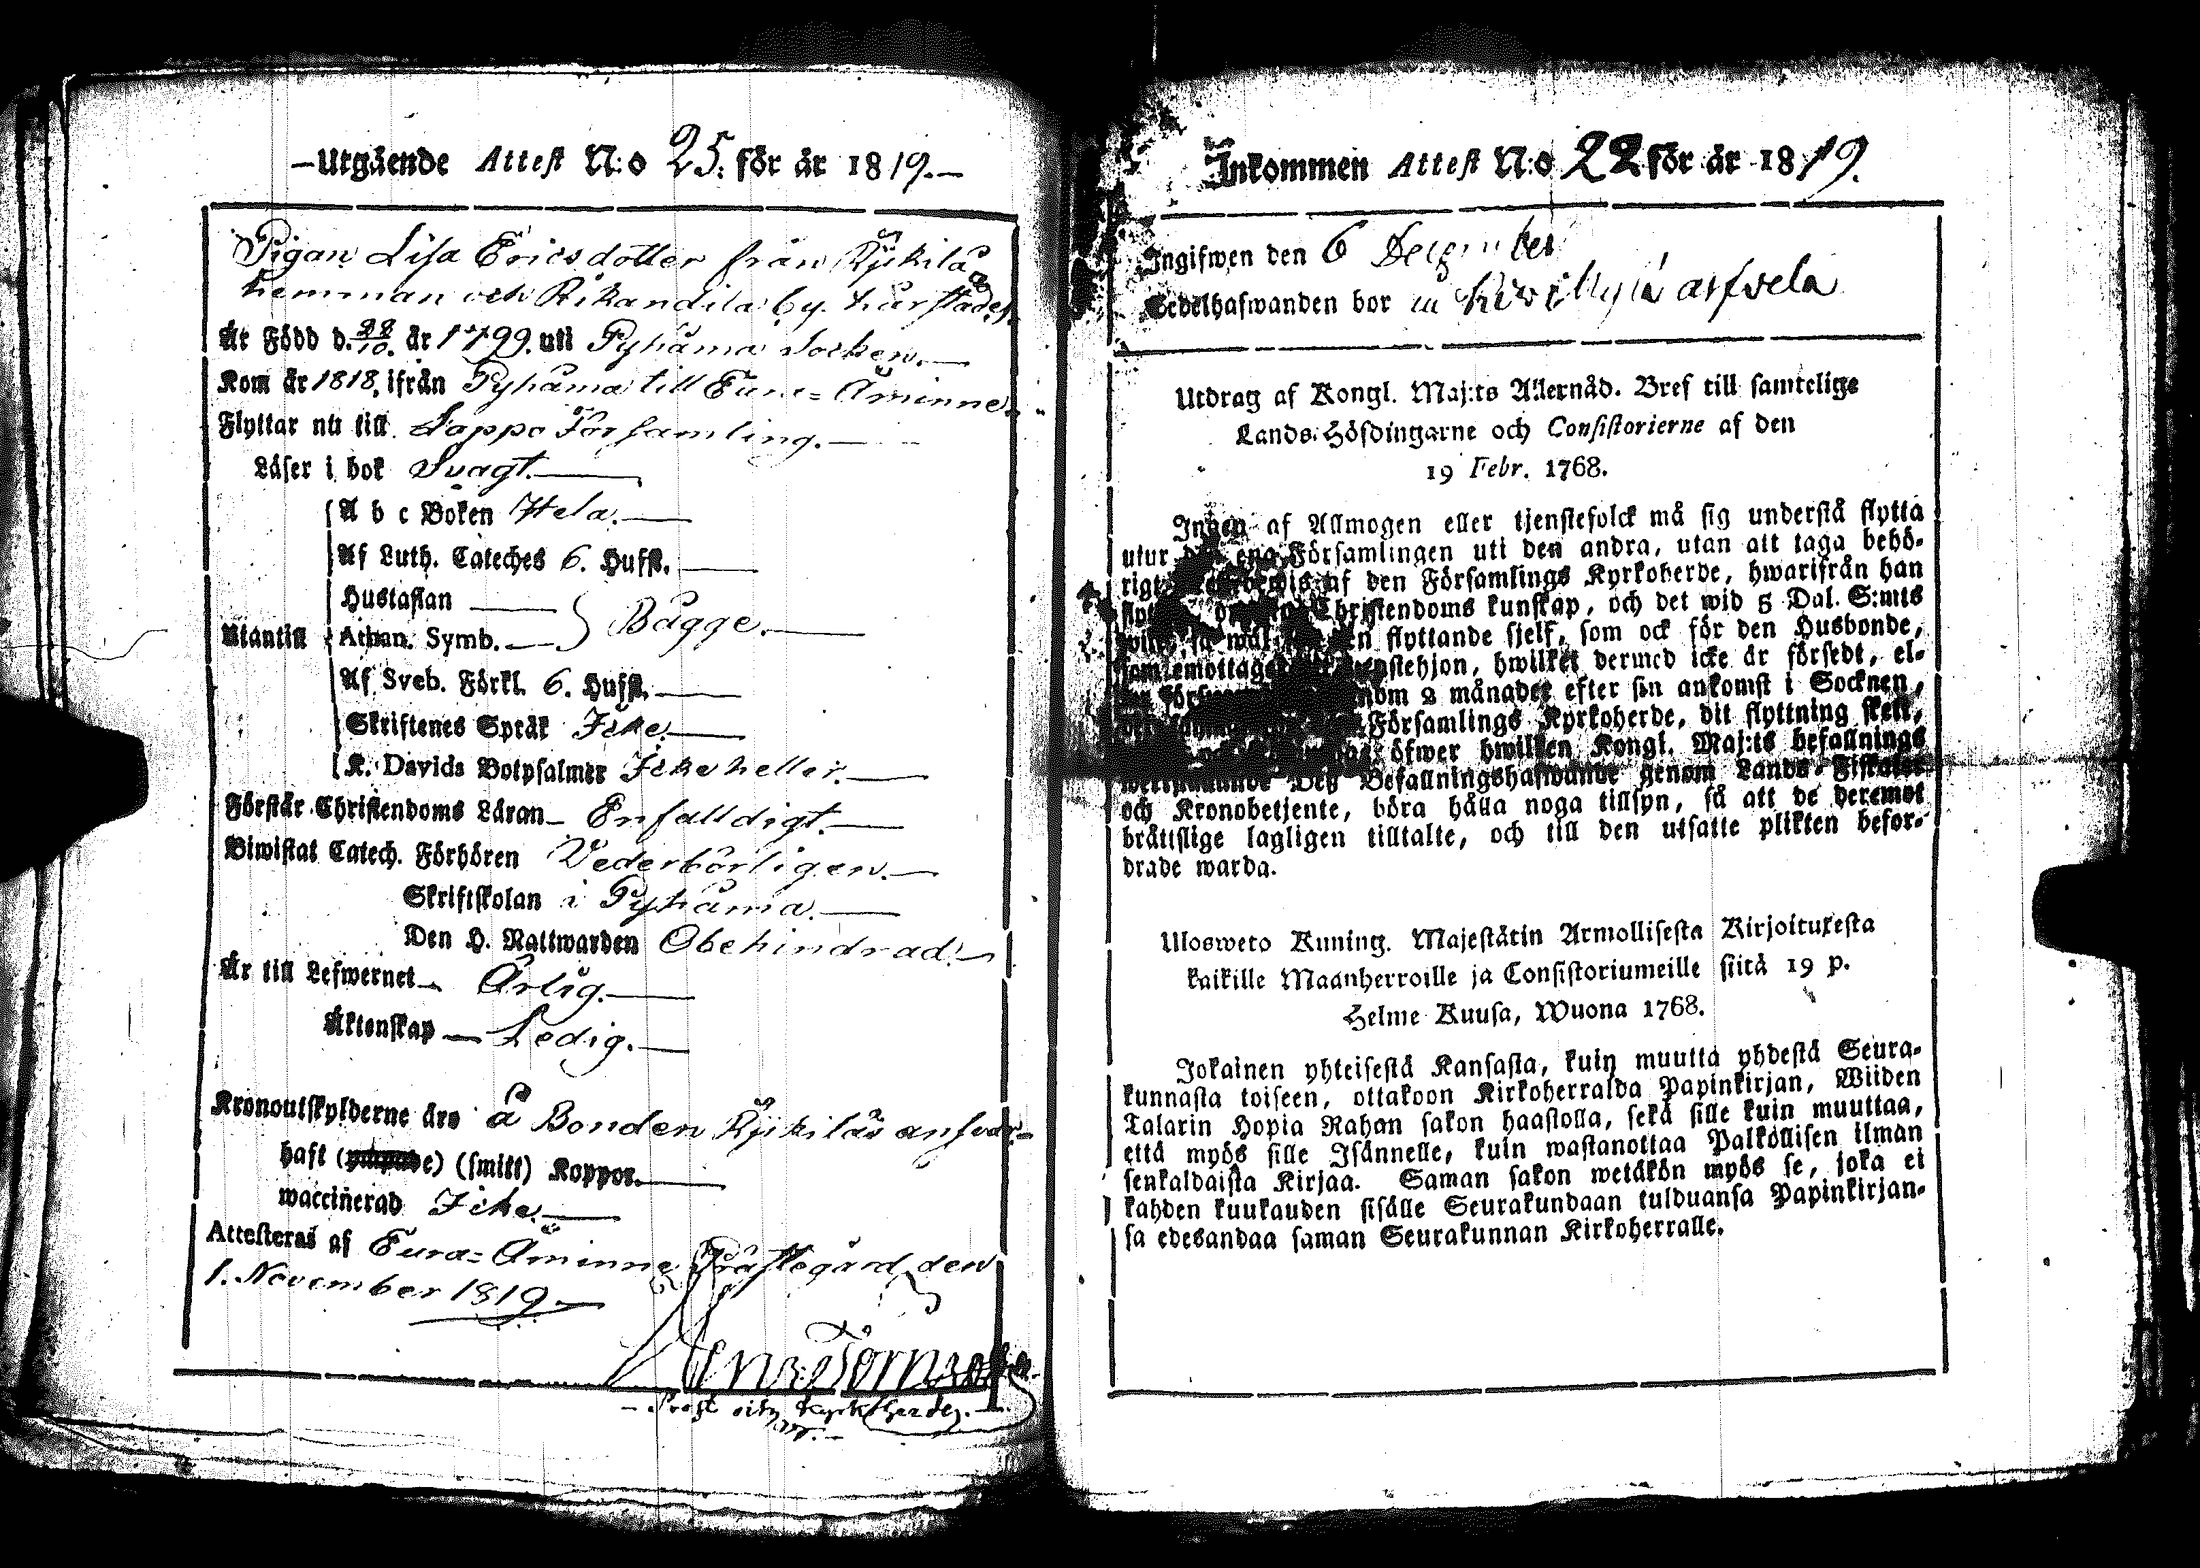 Utgående Attest N:o 25. för år 1819.
Pigan Lisa Ericsdotter från Kÿkilä
hemman och Rikandila by härstädes.
Är Född d. 28/10. år 1799. uti Pyhäma Socken.
Kom år 1818, ifrån Pyhäma till Eura=Åminne.
Flyttar nu till Lappo Församling.
Läser i bok Svagt.
A b c Boken Hela.
Af Luth. Cateches 6. Hufst.
Hustaflan
Utantill Athan. Symb. Bägge.
Af Sveb. Förkl. 6. Hufst.
Skriftenes Språk Icke.
K. Davids Botpsalmer Icke heller.
Förstår Christendoms Läran Enfalldigt.
Biwistat Catech. Förhören Vederbörligen.
Skriftskolan i Pyhäma.
Den H. Nattwarden Obehindrad.
Är till Lefwernet Ärlig.
Äktenskap Ledig.
Kronoutskylderne äro å Bonden Kÿkiläs answar
haft (smitt) Koppor.
waccinerad Icke.
Attesteras af Eura=Åminne Prästegård den
1. November 1819.
Prost och Kyrkoherde.
Inkommen Attest N:o 22 för år 1819.
Ingifwen den 6 December
Sedelhafwanden bor
Utdrag af Kongl. Maj:ts Allernåd. Bref till samtelige
Lands-Höfdingarne och Consistorierne af den
19 Febr. 1768.
Ingen af Allmogen eller tjenstefolck må sig understå flytta
utur den ena Församlingen uti den andra, utan att taga behö-
rigt af den Församlings Kyrkoherde, hwarifrån han
Christendoms kunskap, och det wid 5 Dal. S:mts
flyttande sjelf, som ock för den Husbonde,
hwilket dermed icke är försedt, el-
2 månader efter sin ankomst i Socknen,
Församlings Kyrkoherde, dit flyttning skett,
öfwer hwilken Kongl. Maj:ts befallnings
Befallningshafwande genom Lands-Fiskaler
och Kronobetjente, böra hålla noga tillsyn, så att de deremot
bråttslige lagligen tilltalte, och till den utsatte plikten befor-
drade warda.
Ulosweto Kuning. Majestätin Armollisesta Kirjoituxesta
kaikille Maanherroille ja Consistoriumeille siitä 19 p.
Helme Kuusa, Wuona 1768.
Jokainen yhteisestä Kansasta, kuin muutta yhdestä Seura-
kunnasta toiseen, ottakoon Kirkoherralda Papinkirjan, Wiiden
Talarin Hopia Rahan sakon haastolla, sekä sille kuin muuttaa,
että myös sille Isännelle, kuin wastanottaa Palkollisen ilman
senkaldaista Kirjaa. Saman sakon wetäkön myös se, joka ei
kahden kuukauden sisälle Seurakundaan tulduansa Papinkirjan-
sa edesandaa saman Seurakunnan Kirkoherralle.